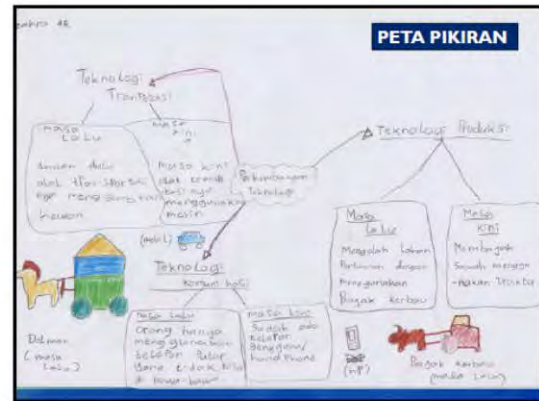 PETA PIKIRAN
Teknologi
Transportasi
masa
LaLu
masa
kini
zaman dulu
alat transportasi
nya menggunakan
hewan
masa kini
alat transpor
tasi nya
menggunakan
mesin
(mobil)
Perkembangan
Teknologi
Teknologi Produksi
Masa
LaLu
Mengolah Lahan
Pertanian dengan
menggunakan
Bajak kerbau
Masa
kini
Membajak
Sawah menggu
-nakan traktor
Teknologi
komunikasi
Masa LaLu
Orang hanya
menggunakan
telepon
yang tidak bisa
di bawa-bawa
masa kini
Sudah ada
telepon
Genggam/
handphone
(HP)
Delman
(masa
LaLu)
Bajak kerbau
(masa LaLu)